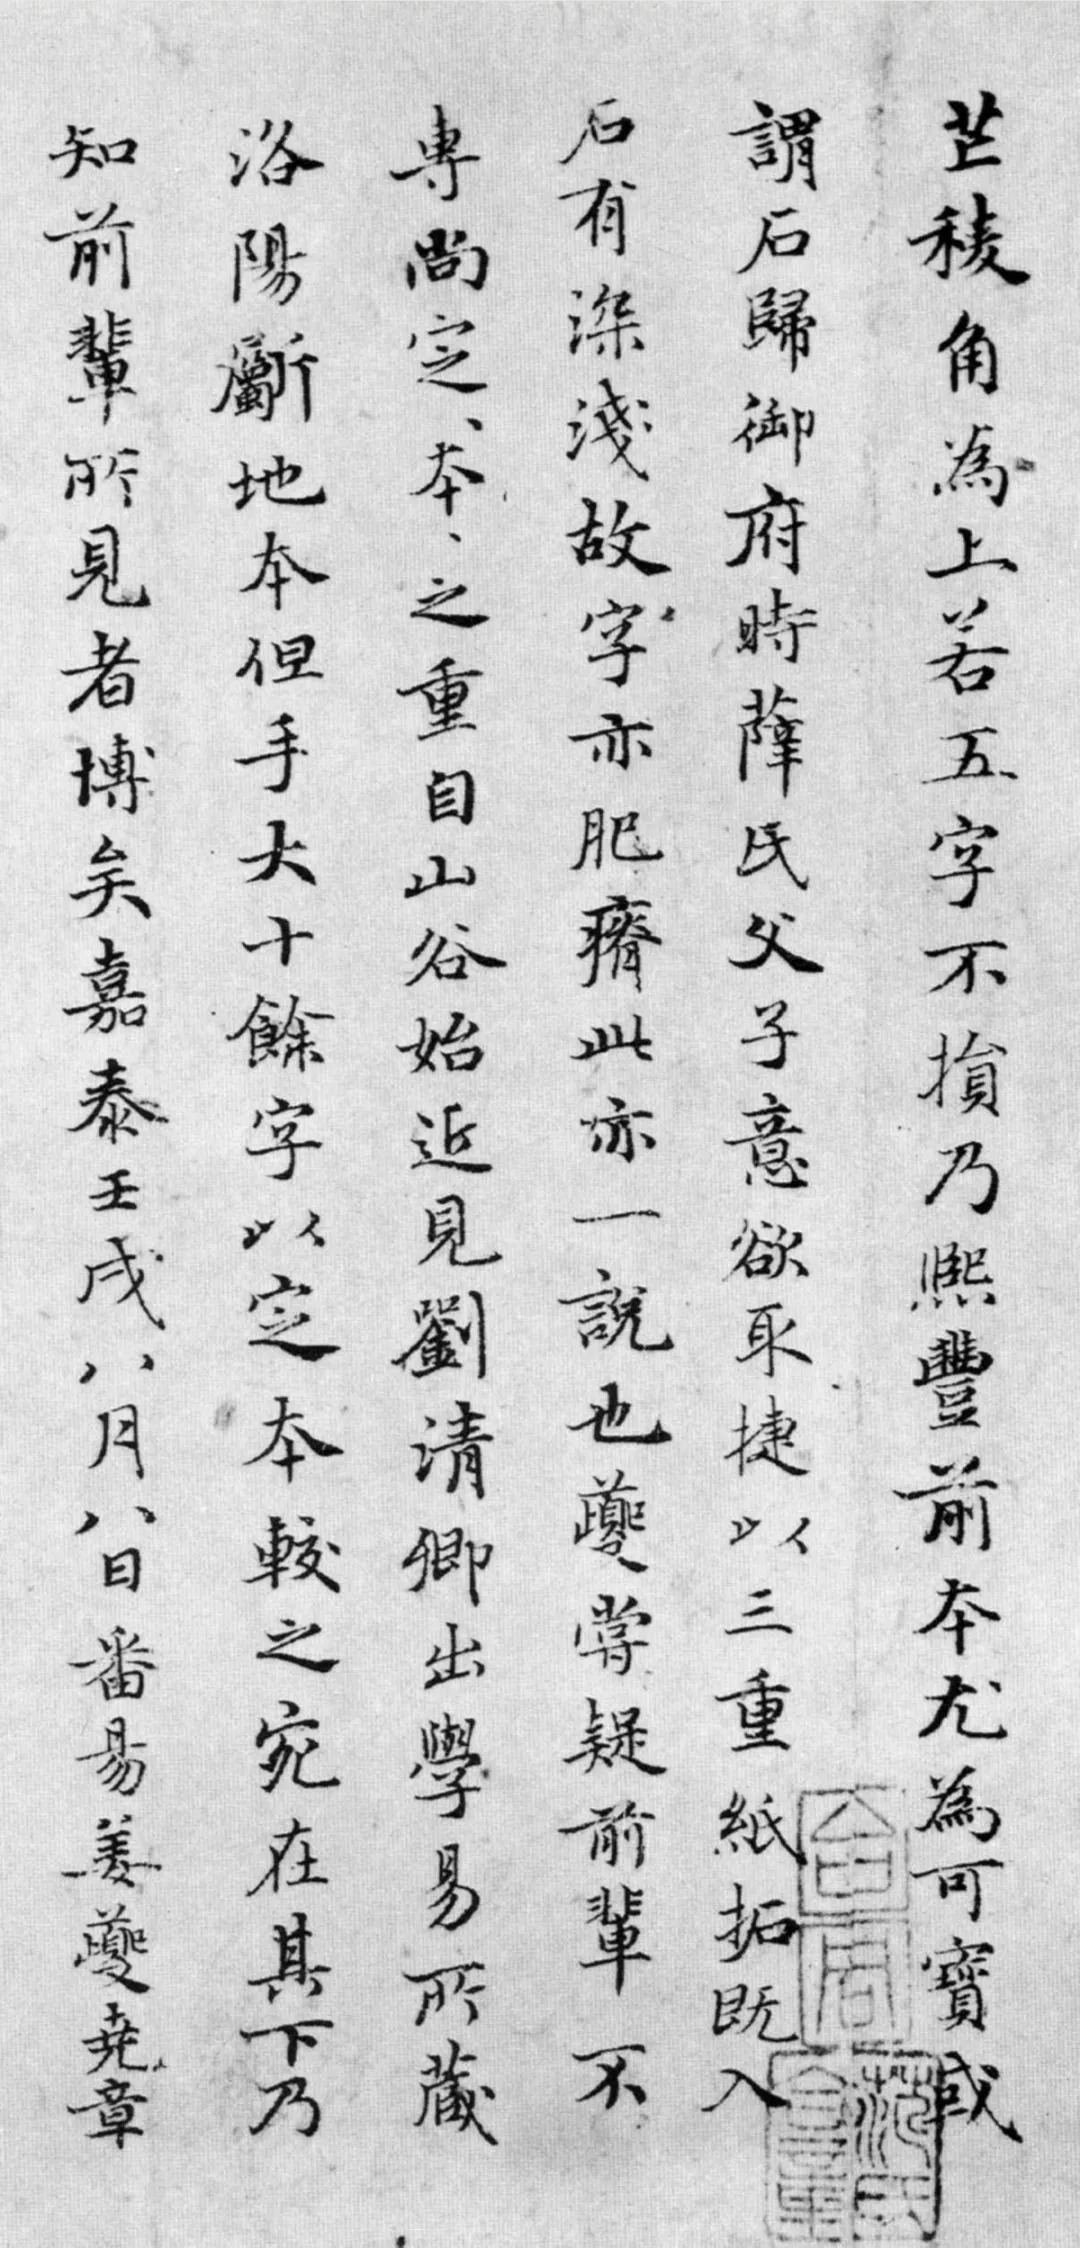 芒稜角為上若五字不損乃熙豐前本尤為可寶或
謂石歸御府時薛氏父子意欲取捷以三重紙拓既入
石有深淺故字亦肥瘠此亦一說也夔嘗疑前輩不
專尚定、本、之重自山谷始近見劉清卿出學易所藏
洛陽斸地本但手大十餘字以定本較之宛在其下乃
知前輩所見者博矣嘉泰壬戌八月八日番昜姜夔堯章